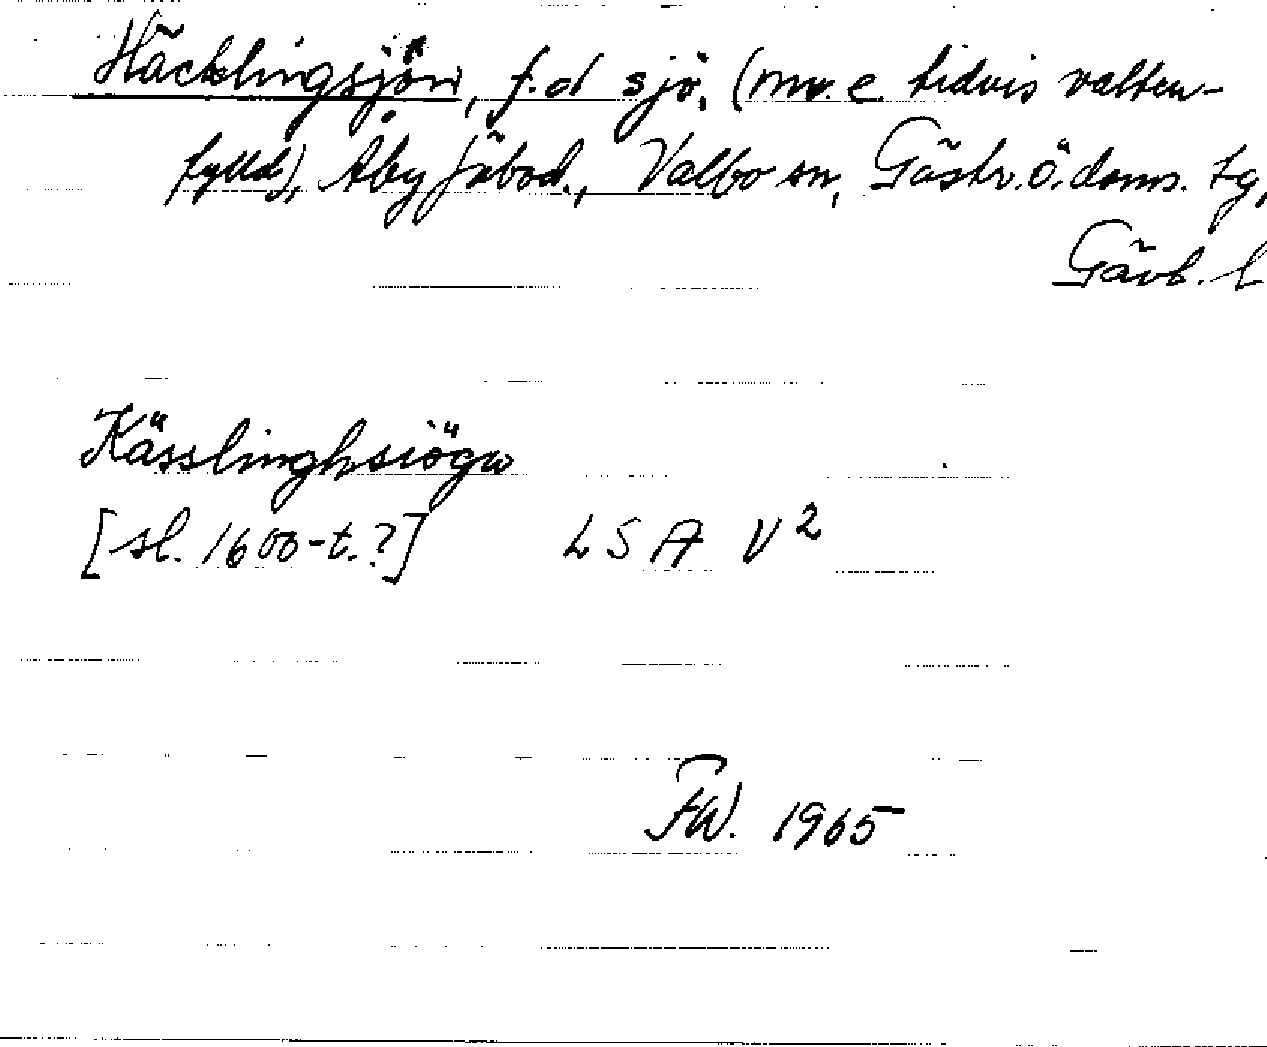 Häcklingsjön, f.d sjö, (mv. e. tidvis vatten-
fylld), Åby fäbod., Valbo sn, Gästr. ö. doms. tg,
Gävb. l
Kässlinghsiögn
[sl. 1600-t.?] LSA V²
FW. 1965